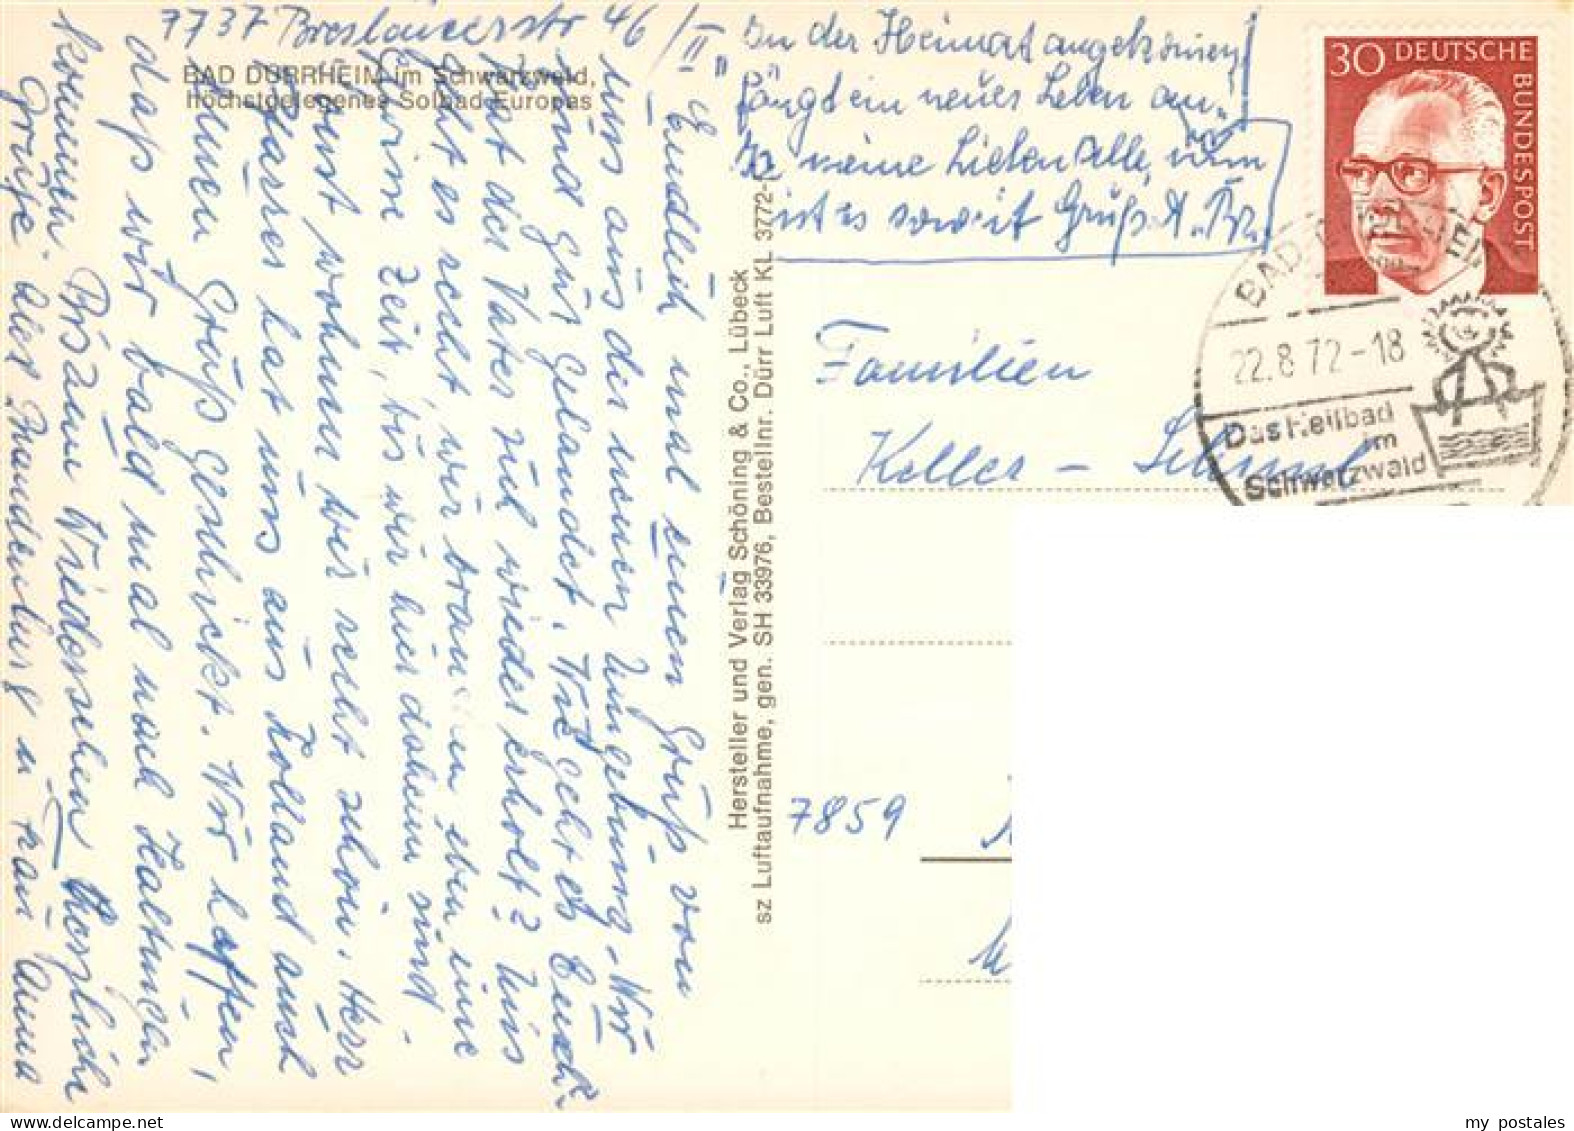 7737 Breslauerstr 46 / II
BAD DÜRRHEIM im Schwarzwald,
Höchstgelegenes Solbad Europas
Endlich mal einen Gruß von
uns aus der neuen Umgebung. Wir
sind gut gelandet. Wie geht es Euch?
Hat der Vater sich wieder erholt? Uns
geht es recht, wir brauchen eben eine
gewisse Zeit, bis wir hier daheim sind.
Sonst wohnen wir recht schön. Herr
Pfarrer hat uns aus Holland auch
einen Gruß geschickt. Wir hoffen,
daß wir bald mal nach Haltingen
kommen. Bis zum Wiedersehen herzliche
Grüße aler Brandenburg u. Frau Anna
"In der Heimat angekommen,
fängt ein neues Leben an."
Ja meine Lieben alle, nun
ist es soweit Gruß A. Br.
Hersteller und Verlag Schöning & Co., Lübeck
sz Luftaufnahme, gen. SH 33976, Bestellnr. Dürr Luft KL 3772-
30 DEUTSCHE
BUNDESPOST
BAD
22.8.72-18
Das Heilbad
im
Schwarzwald
Familien
Keller -
7859
my postales